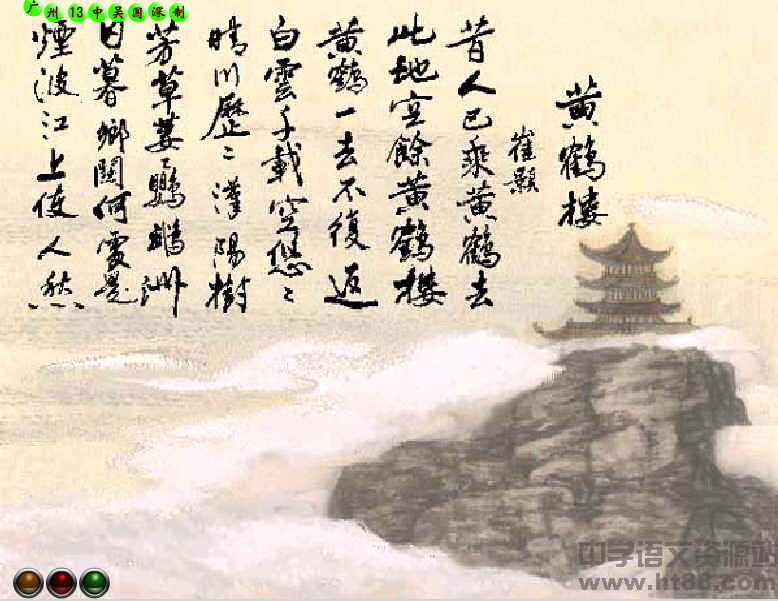 广州13中吴国深制
黄鶴樓
崔顥
昔人已乘黄鶴去
此地空餘黄鶴樓
黄鶴一去不復返
白雲千載空悠〻
晴川歷〻漢陽樹
芳草萋〻鸚鵡洲
日暮鄉關何處是
煙波江上使人愁
中学语文资源站
www.ht88.com